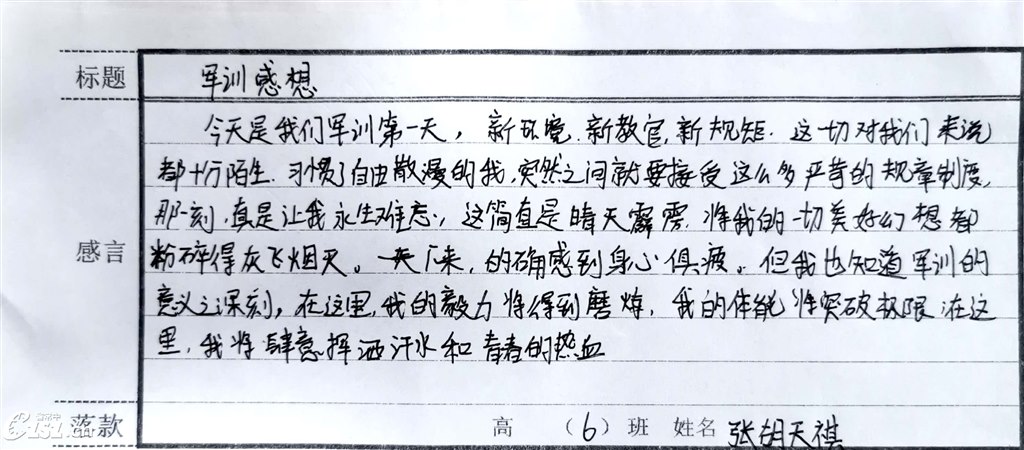 标题 军训感想
今天是我们军训第一天，新环境.新教官.新规矩.这一切对我们来说
都十分陌生.习惯了自由散漫的我,突然之间就要接受这么多严苛的规章制度,
那一刻,真是让我永生难忘,这简直是晴天霹雳.将我的一切美好幻想都
感言 粉碎得灰飞烟灭。一天下来,的确感到身心俱疲。但我也知道军训的
意义之深刻,在这里,我的毅力将得到磨炼,我的体能将突破极限.在这
里,我将肆意挥洒汗水和青春的热血
落款 高 （6）班 姓名 张胡天祺